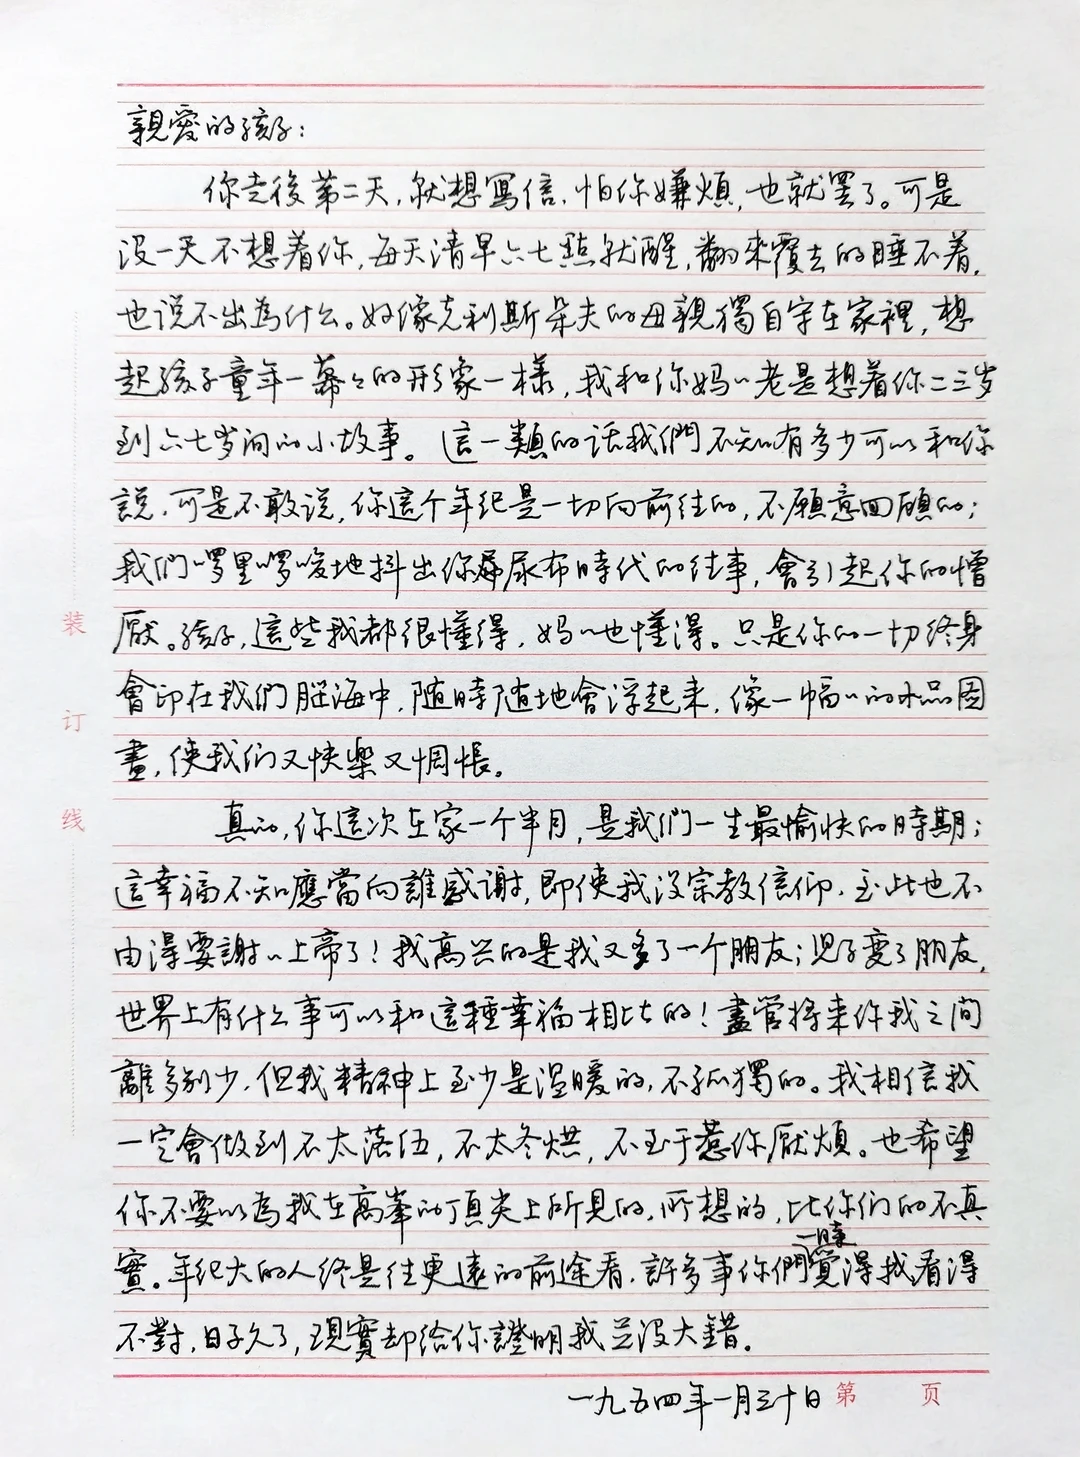 親愛的孩子：
你走後第二天，就想寫信，怕你嫌煩，也就罷了。可是
没一天不想着你，每天清早六七點就醒，翻來覆去的睡不着，
也说不出為什么。好像克利斯朵夫的母親獨自守在家裡，想
起孩子童年一幕々的形象一樣，我和你妈〻老是想着你二三岁
到六七岁间的小故事。這一類的话我們不知有多少可以和你
説，可是不敢说，你這个年纪是一切向前往的，不願意回顧的；
我們啰里啰唆地抖出你尿布時代的往事，會引起你的憎
厭。孩子，這些我都很懂得，妈〻也懂得。只是你的一切终身
會印在我們脑海中，随時随地會浮起来，像一幅〻的小品图
畫，使我们又快樂又惆怅。
真的，你這次在家一个半月，是我們一生最愉快的時期；
這幸福不知應當向誰感谢，即使我没宗教信仰，至此也不
由得要謝〻上帝了！我高兴的是我又多了一个朋友；児子变了朋友，
世界上有什么事可以和這種幸福相比的！盡管将来你我之间
離多别少，但我精神上至少是温暖的，不孤獨的。我相信我
一定會做到不太落伍，不太冬烘，不至于惹你厭煩。也希望
你不要以為我在高峯的顶尖上所見的，所想的，比你们的不真
實。年纪大的人终是往更遠的前途看，許多事你們一時覺得我看得
不對，日子久了，現實却给你證明我并没大錯。
一九五四年一月三十日
第 页
装
订
线